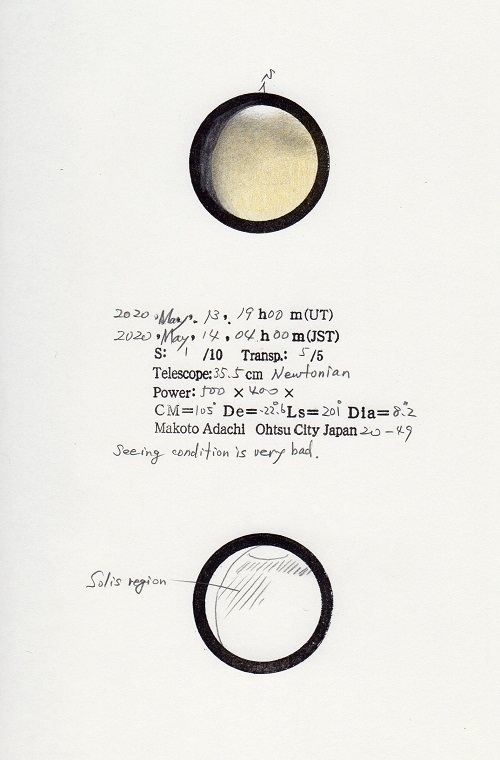 S
2020. May. 13. 19 h 00 m (UT)
2020. May. 14. 04 h 00 m (JST)
S: 1 /10 Transp.: 5 /5
Telescope: 35.5 cm Newtonian
Power: 500 × 400 ×
CM=105° De=-22.6° Ls=201° Dia=8."2
Makoto Adachi Ohtsu City Japan 20-49
Seeing condition is very bad.
Solis region